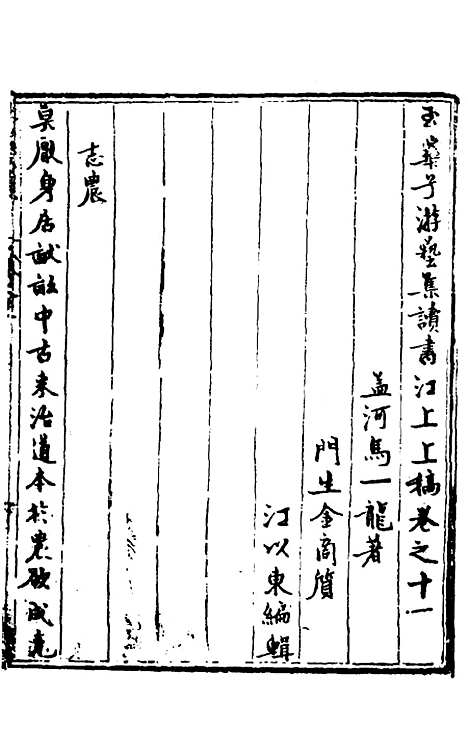 玉華子游藝集讀書江上上稿卷之十一
孟河馬一龍著
門生金商質
江以東編輯
志農
莫厭身居畎畝中古來治道本於農欲成